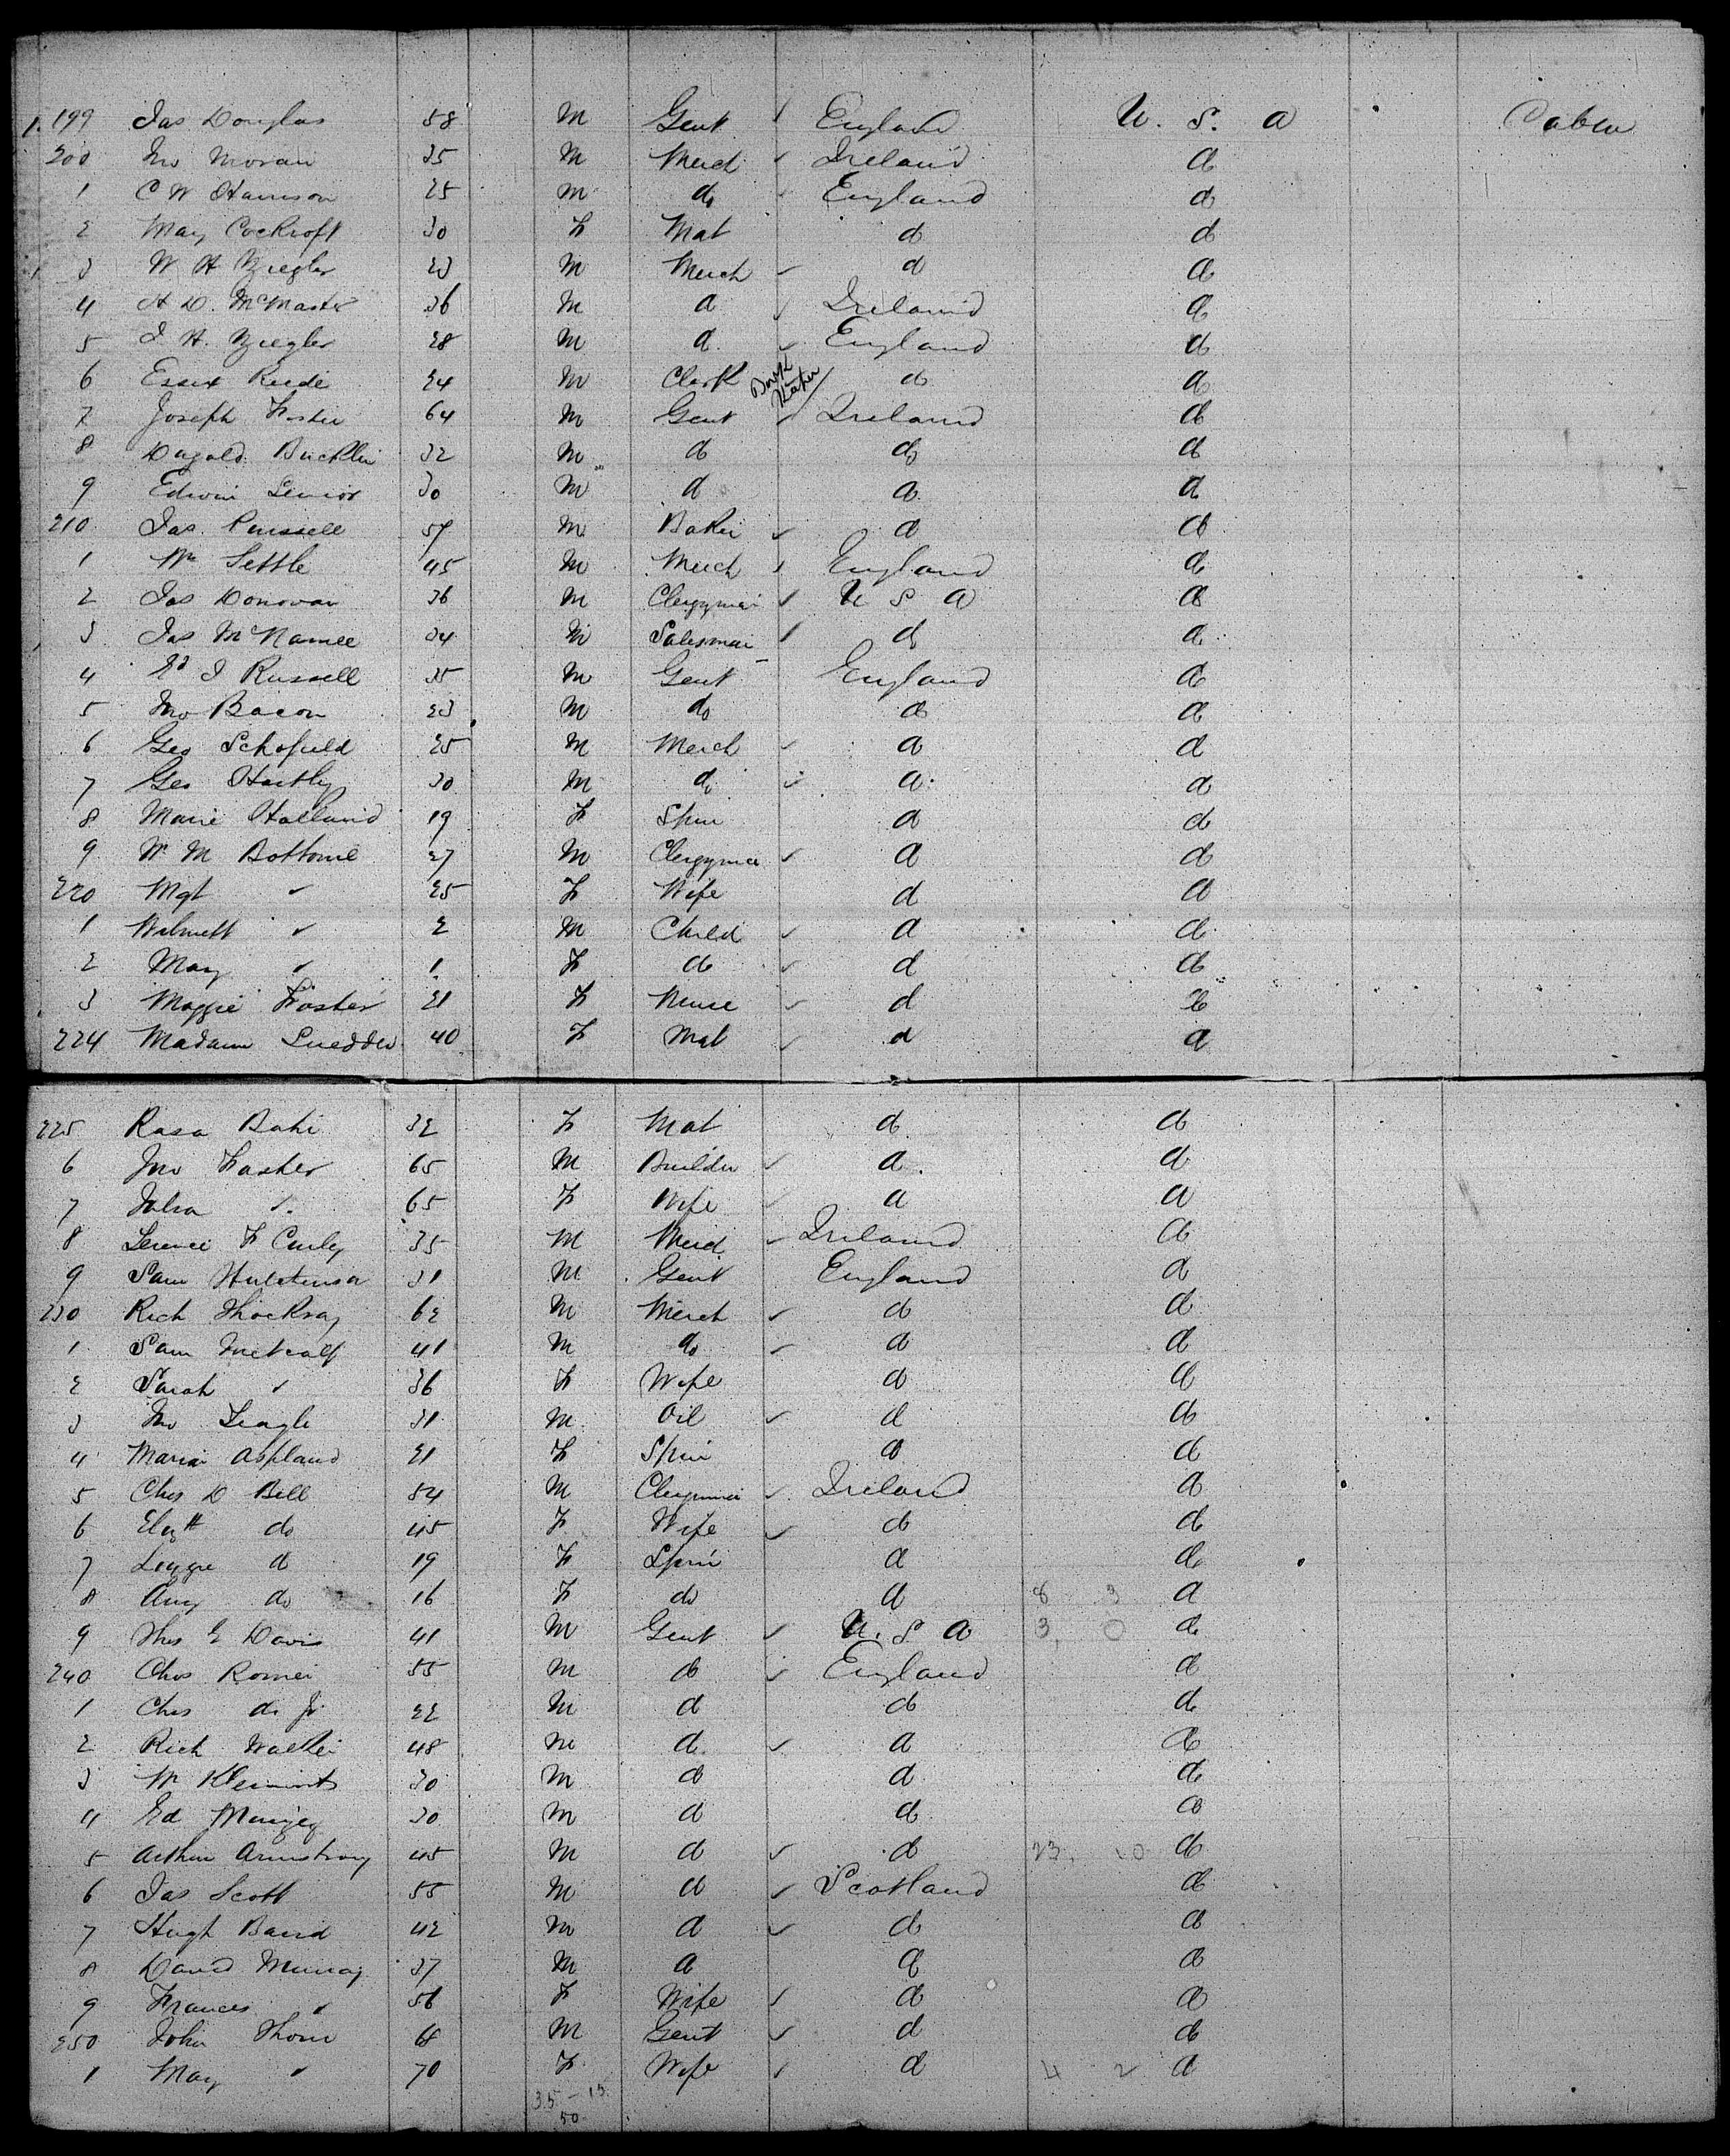 199 Jas Douglas 58 M Gent England U. S. A Cabin
200 Jno Moran 35 M Merch Ireland do
1 C W Harrison 25 M do England do
2 Mary Cockroft 30 F Mat do do
3 W H Ziegler 23 M Merch do do
4 A D. McMaster 36 M do Ireland do
5 J H. Ziegler 28 M do England do
6 Essex Reede 24 M Clerk do do
7 Joseph Foster 64 M Gent Ireland do
8 Dugald 32 M do do do
9 Edwin Senior 30 M do do do
210 Jas. 57 M Baker do do
1 Wm Settle 45 M Merch England do
2 Jas Donovan 36 M Clergyman U S A do
3 Jas McNamee 34 M Salesman do do
4 Ed J Russell 35 M Gent England do
5 Jno Bacon 23 M do do do
6 Geo Schofield 25 M Merch do do
7 Geo Hartley 30 M do do do
8 Marie Holland 19 F Spin do do
9 W M Bottome 27 M Clergyman do do
220 Mgt " 25 F Wife do do
1 Wilmett " 2 M Child do do
2 Mary " 1 F do do do
3 Maggie Foster 21 F Nurse do do
224 Madam 40 F Mat do do
225 Rasa 32 F Mat do do
6 Jno Foster 65 M Builder do do
7 Julia " 65 F Wife do do
8 Terence F Curley 35 M Merch Ireland do
9 Sam 31 M Gent England do
230 Rich Thackray 62 M Merch do do
1 Sam Metcalf 41 M do do do
2 Sarah " 36 F Wife do do
3 Jno Teagle 31 M Oil do do
4 Maria Aspland 21 F Spin do do
5 Chas D Bell 54 M Clergyman Ireland do
6 Elizth do 45 F Wife do do
7 Lizzie do 19 F Spin do do
8 Amy do 16 F do do do
9 Thos E Davis 41 M Gent U. S A 3 0 do
240 Chas Romer 55 M do England do
1 Chas do Jr 22 M do do do
2 Rich Walker 48 M do do do
3 W 30 M do do do
4 Ed 30 M do do do
5 Arthur Armstrong 45 M do do do
6 Jas Scott 55 M do Scotland do
7 Hugh Baird 42 M do do do
8 David Murray 37 M do do do
9 Frances " 56 F Wife do do
250 John Thom 68 M Gent do do
1 Mary " 70 F Wife do 4 2 do
35 - 15
50